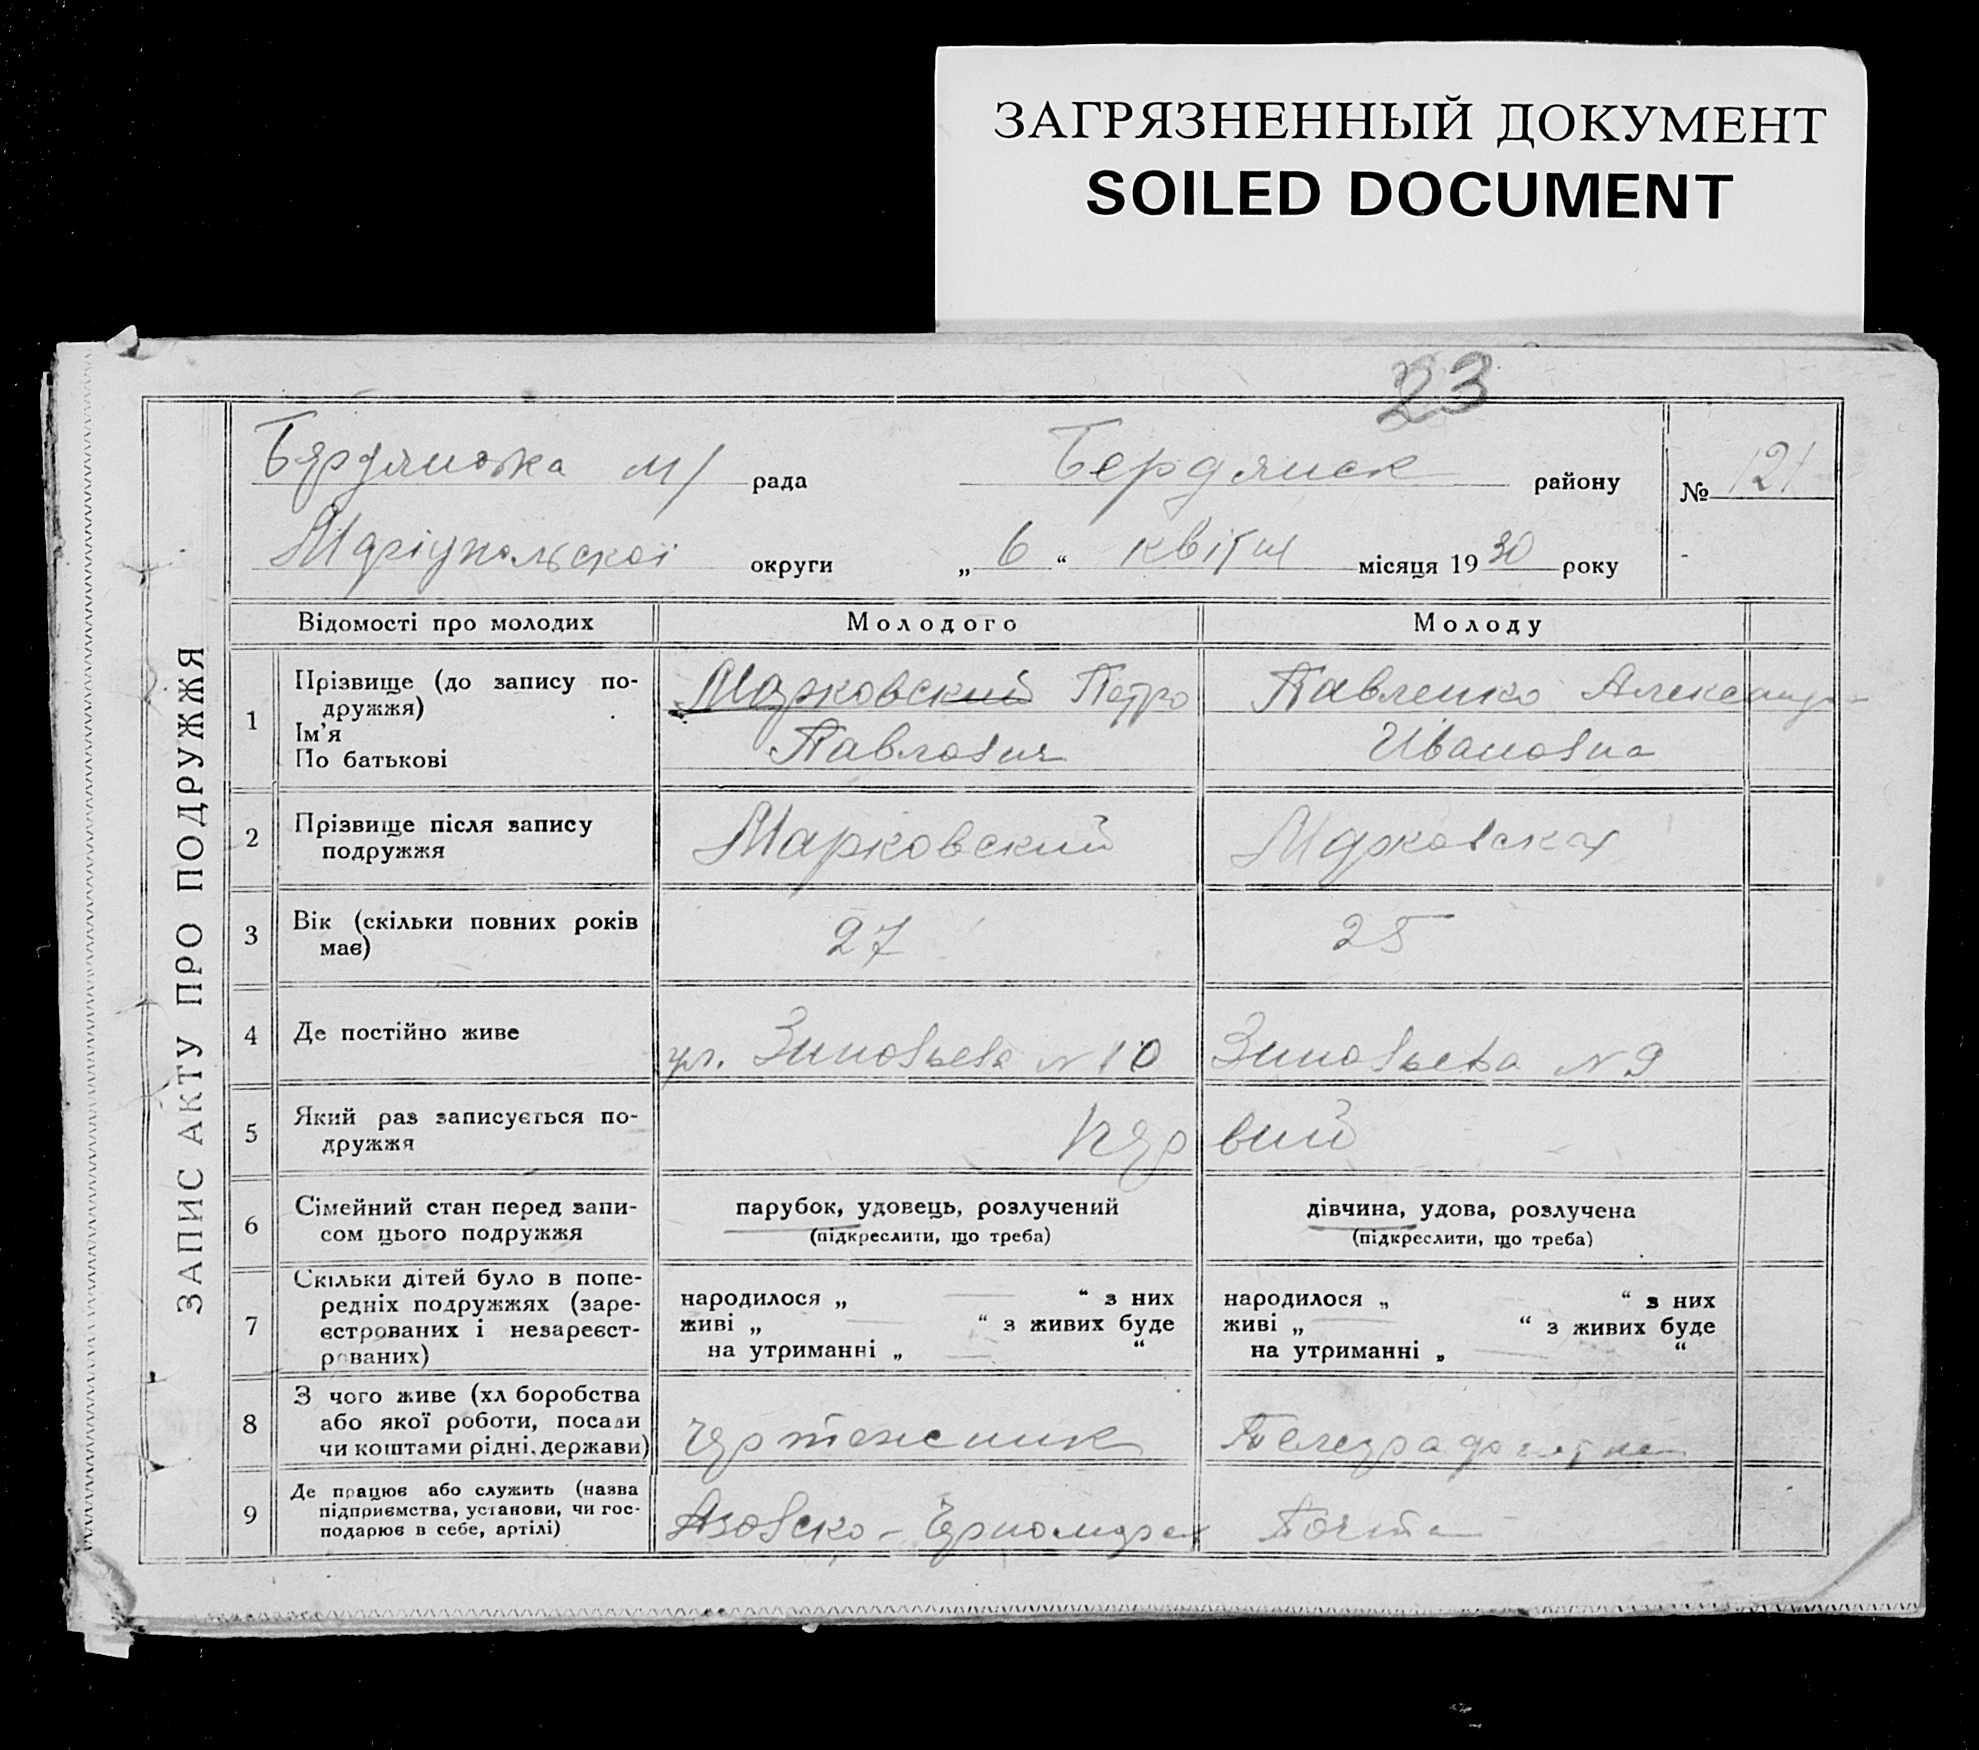 ЗАГРЯЗНЕННЫЙ ДОКУМЕНТ
SOILED DOCUMENT
23
ЗАПИС АКТУ ПРО ПОДРУЖЖЯ
Бердянська м/ рада Бердянск району № 121
Маріупольскої округи „ 6 “ квітня місяця 1930 року
Відомості про молодих Молодого Молоду
1 Прізвище (до запису по-
дружжя)
Ім'я
По батькові
Марковский Петро
Павлович
Павленко Александра
Ивановна
2 Прізвище після запису
подружжя
Марковский Марковская
3 Вік (скільки повних років
має)
27 25
4 Де постійно живе
ул. Зиновьева N 10 Зиновьева N 9
5 Який раз записується по-
дружжя
первий
6 Сімейний стан перед запи-
сом цього подружжя
парубок, удовець, розлучений
(підкреслити, що треба)
дівчина, удова, розлучена
(підкреслити, що треба)
7 Скільки дітей було в попе-
редніх подружжях (заре-
єстрованих і незареєст-
рованих)
народилося „ — “ з них
живі „ — “ з живих буде
на утриманні „ — “
народилося „ — “ з них
живі „ — “ з живих буде
на утриманні „ — “
8 З чого живе (хлiборобства
або якої роботи, посади
чи коштами рідні, держави)
Чертежник
9 Де працює або служить (назва
підприємства, установи, чи гос-
подарює в себе, артілі)
Азовско-Черноморск Почта